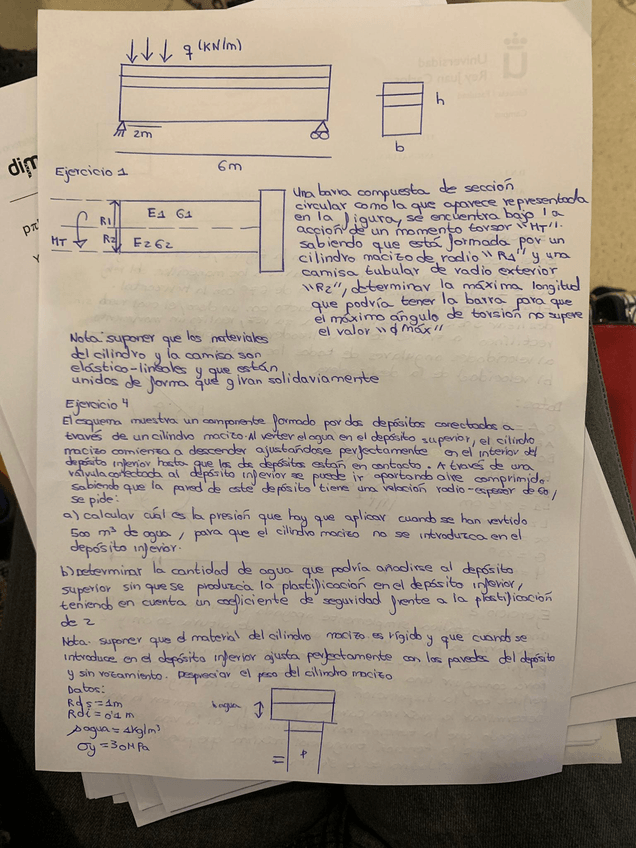 q (KN/m)
2m
6m
h
b
Ejercicio 1
R1
R2
MT
E1 G1
E2 G2
Una barra compuesta de sección
circular como la que aparece representada
en la figura, se encuentra bajo la
acción de un momento torsor "MT".
sabiendo que está formada por un
cilindro macizo de radio "R1" y una
camisa tubular de radio exterior
"R2", determinar la máxima longitud
que podría tener la barra para que
el máximo ángulo de torsión no supere
el valor "ϕ máx"
Nota: suponer que los materiales
del cilindro y la camisa son
elástico-lineales y que están
unidos de forma que giran solidariamente
Ejercicio 4
El esquema muestra un componente formado por dos depósitos conectados a
través de un cilindro macizo. Al verter el agua en el depósito superior, el cilindro
macizo comienza a descender ajustándose perfectamente en el interior del
depósito inferior hasta que los dos depósitos están en contacto. A través de una
válvula conectada al depósito inferior se puede ir aportando aire comprimido.
sabiendo que la pared de este depósito tiene una relación radio-espesor de 50,
se pide:
a) calcular cuál es la presión que hay que aplicar cuando se han vertido
500 m³ de agua, para que el cilindro macizo no se introduzca en el
depósito inferior.
b) Determinar la cantidad de agua que podría añadirse al depósito
superior sin que se produzca la plastificación en el depósito inferior,
teniendo en cuenta un coeficiente de seguridad frente a la plastificación
de 2
Nota. suponer que el material del cilindro macizo es rígido y que cuando se
introduce en el depósito inferior ajusta perfectamente con las paredes del depósito
y sin rozamiento. Despreciar el peso del cilindro macizo
Datos:
Rds = 1m
Rdi = 0'1 m
ρagua = 1Kg/m³
σy = 30MPa
h agua
P
Universidad
Rey Juan Carlos
dim